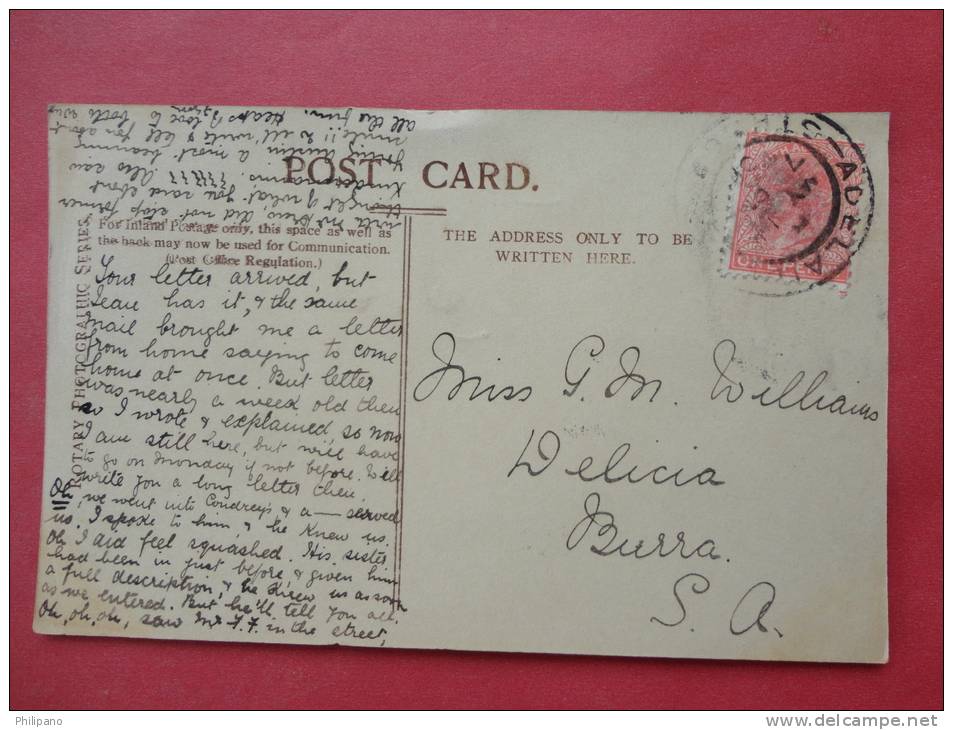 POST CARD.
For Inland Postage only, this space as well as
the back may now be used for Communication.
(Post Office Regulation.)
THE ADDRESS ONLY TO BE
WRITTEN HERE.
ROTARY PHOTOGRAPHIC SERIES.
ADELA
ONE PENNY
Your letter arrived, but
Lean has it, & the same
mail brought me a letter
from home saying to come
home at once. But letter
was nearly a week old then
so I wrote & explained, so now
I am still here, but will have
to go on Monday if not before. Will
write you a long letter then.
Oh!! we went into Condrey's & a — served
us. I spoke to him, & he knew us.
Oh I did feel squashed. His sister
had been in just before, & given him
a full description, & he knew us as soon
as we entered. But he'll tell you all.
Oh, oh, oh, saw Mr F. F. in the street,
did not stop
thought of what you said about
Also saw
young a most beaming
smile!! will write & tell you about
all the fun. Heaps of love to both
Miss G. M. Williams
Delicia
Burra.
S. A.
Philipano
www.delcampe.net